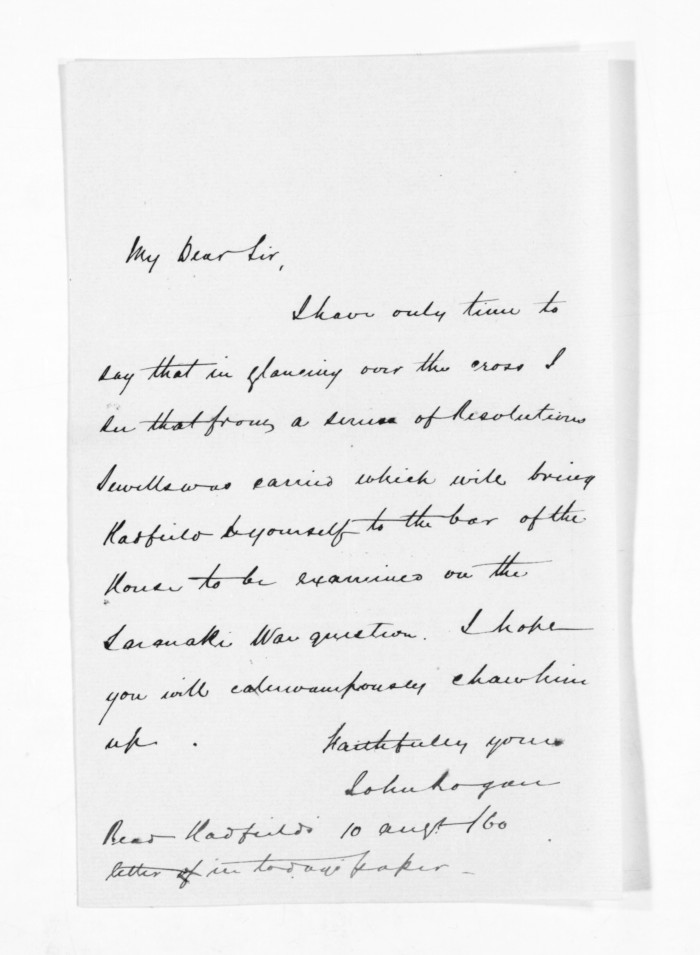 My Dear Sir,
I have only time to
say that in glancing over the cross I
see that from a series of Resolutions
Sewells was carried which will bring
Hadfield & yourself to the bar of the
House to be examined on the
Taranaki War question. I hope
you will catawampously chaw him
up.
Faithfully yours
John Logan
Read Hadfields 10 augt /60
letter of in todays paper -